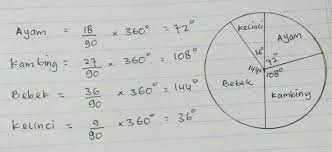 Ayam = 18/90 x 360° = 72°
Kambing = 27/90 x 360° = 108°
Bebek = 36/90 x 360° = 144°
Kelinci = 9/90 x 360° = 36°
Kelinci
Ayam
36°
72°
144°
108°
Bebek
Kambing